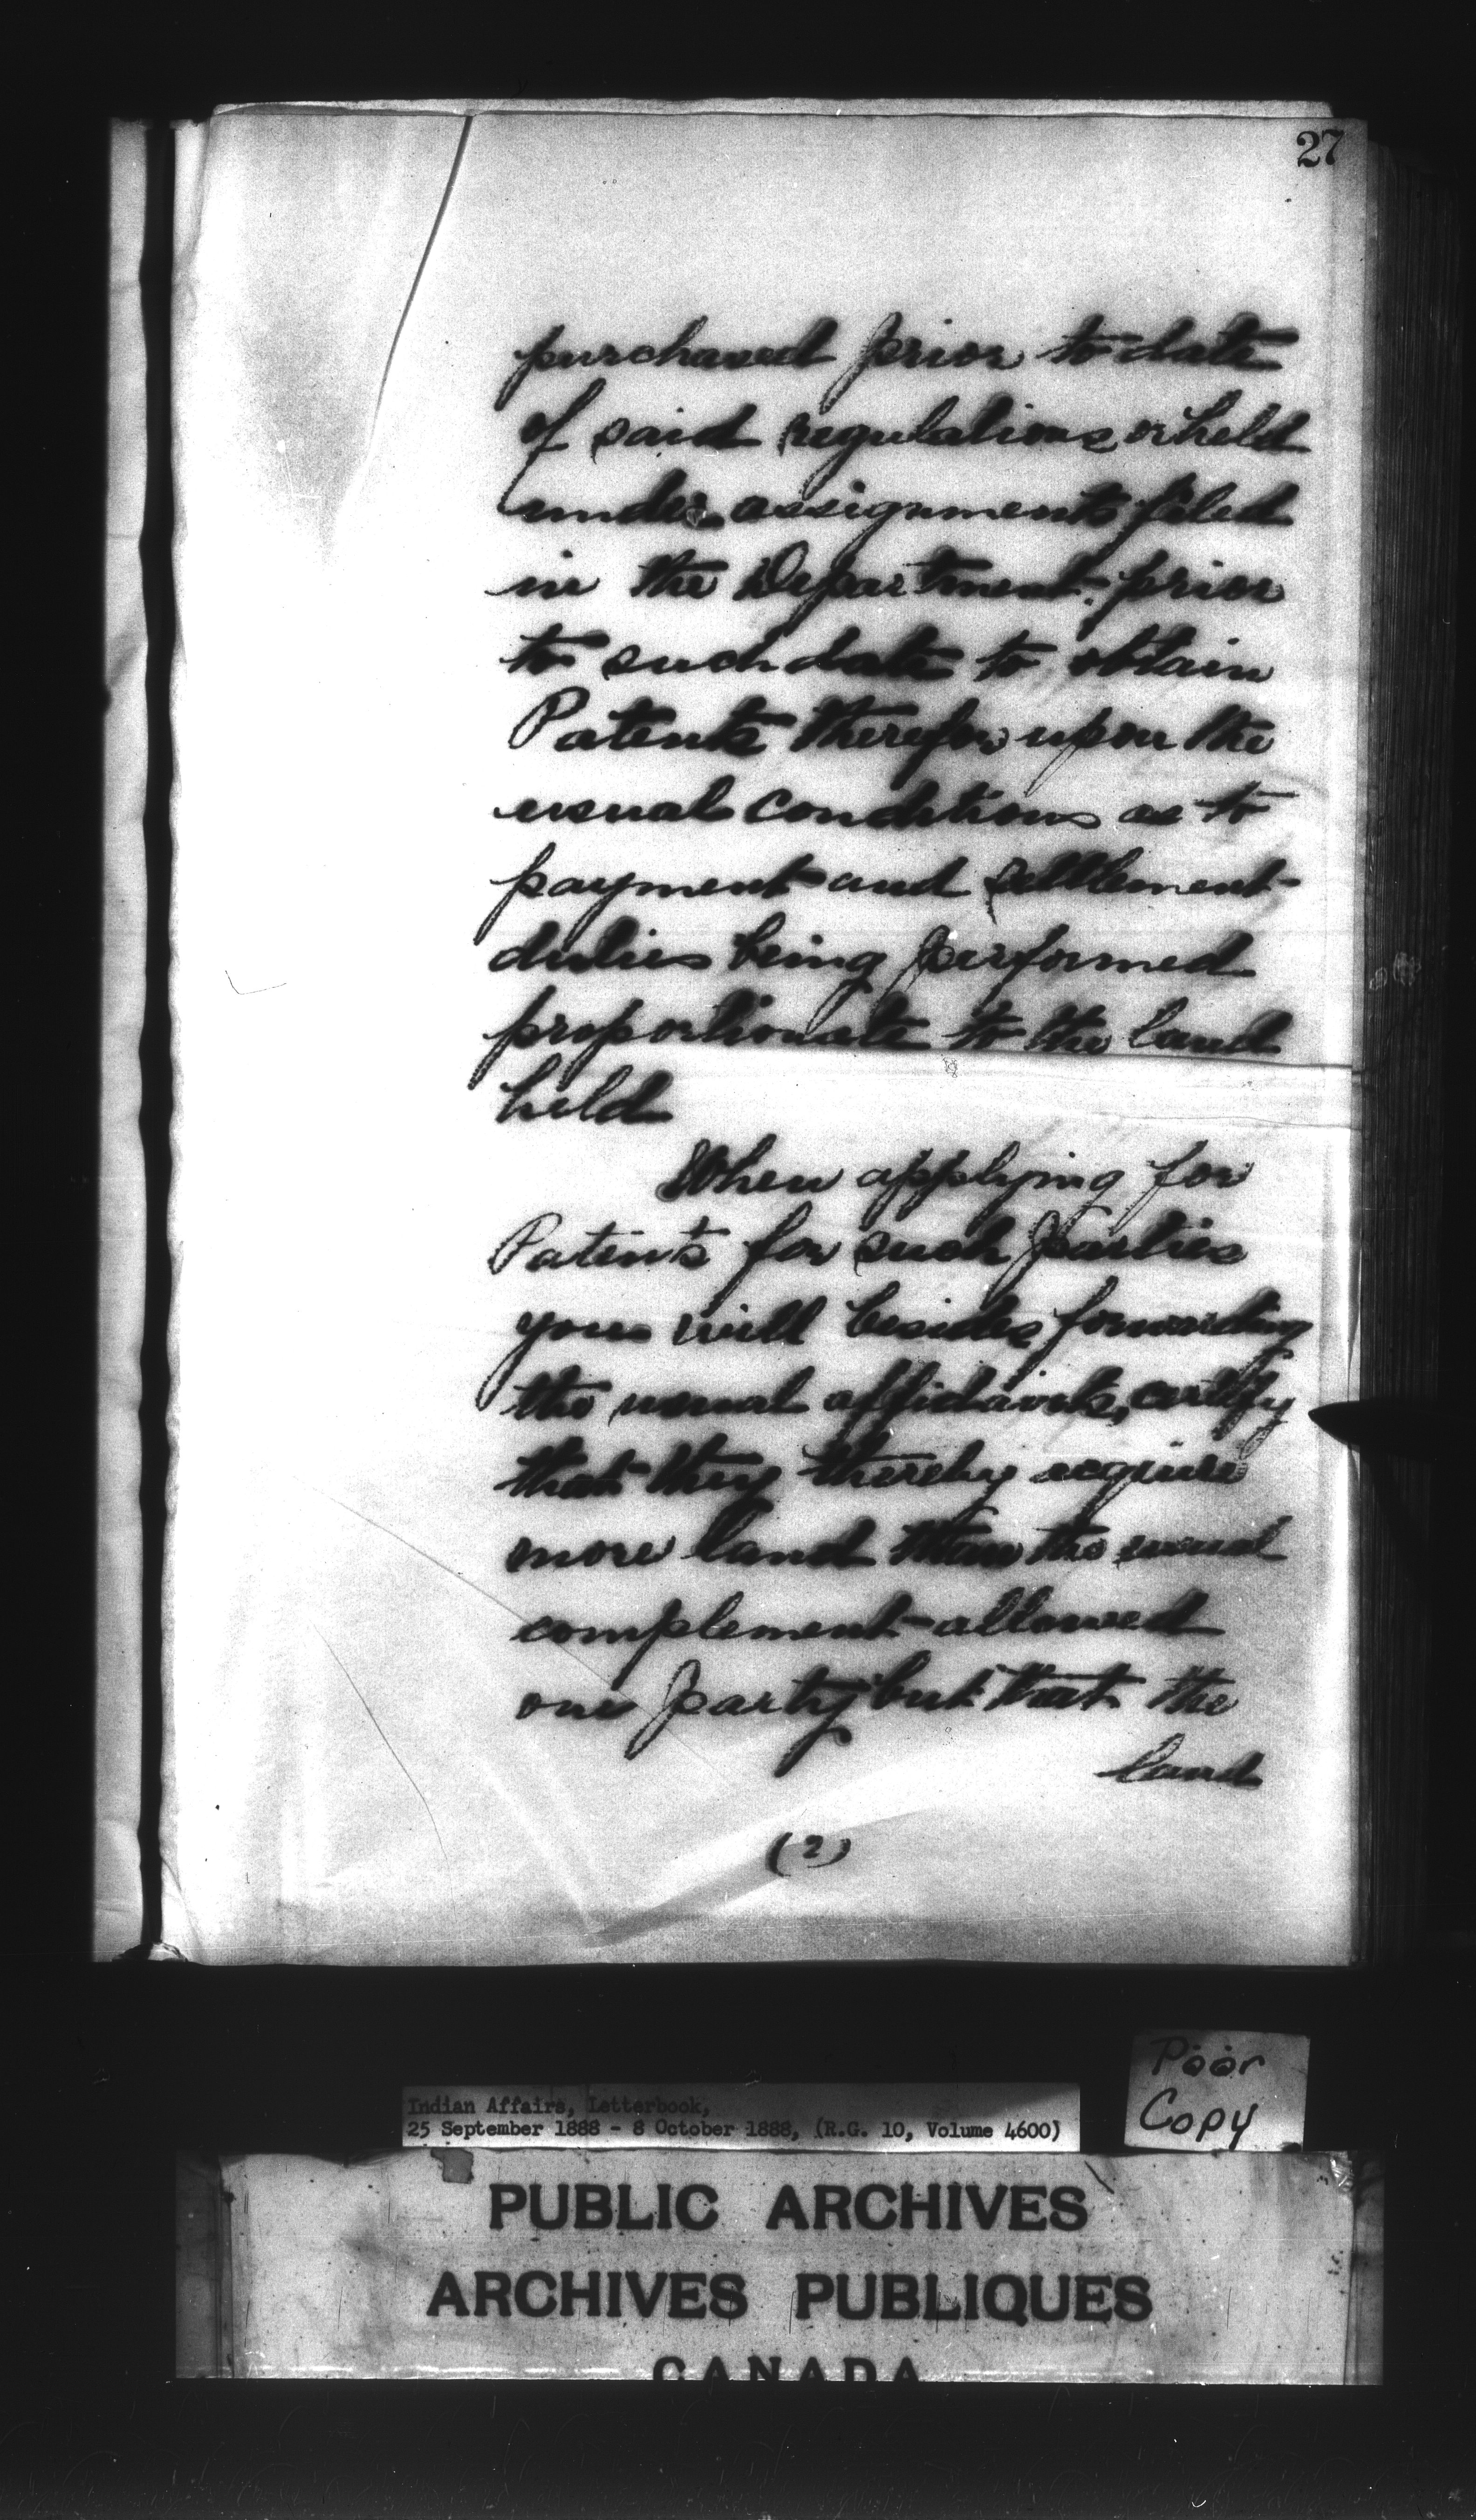 27
purchased prior to date
of said regulations or held
under assignments filed
in the Department prior
to such date to obtain
Patents therefor upon the
usual conditions as to
payment and settlement
duties being performed
proportionate to the land
held
When applying for
Patents for such parties
you will besides forwarding
the usual affidavits, certify
that they thereby acquire
more land than the usual
complement allowed
one party but that the
land
(2)
Poor
Copy
Indian Affairs, Letterbook,
25 September 1888 - 8 October 1888, (R.G. 10, Volume 4600)
PUBLIC ARCHIVES
ARCHIVES PUBLIQUES
CANADA